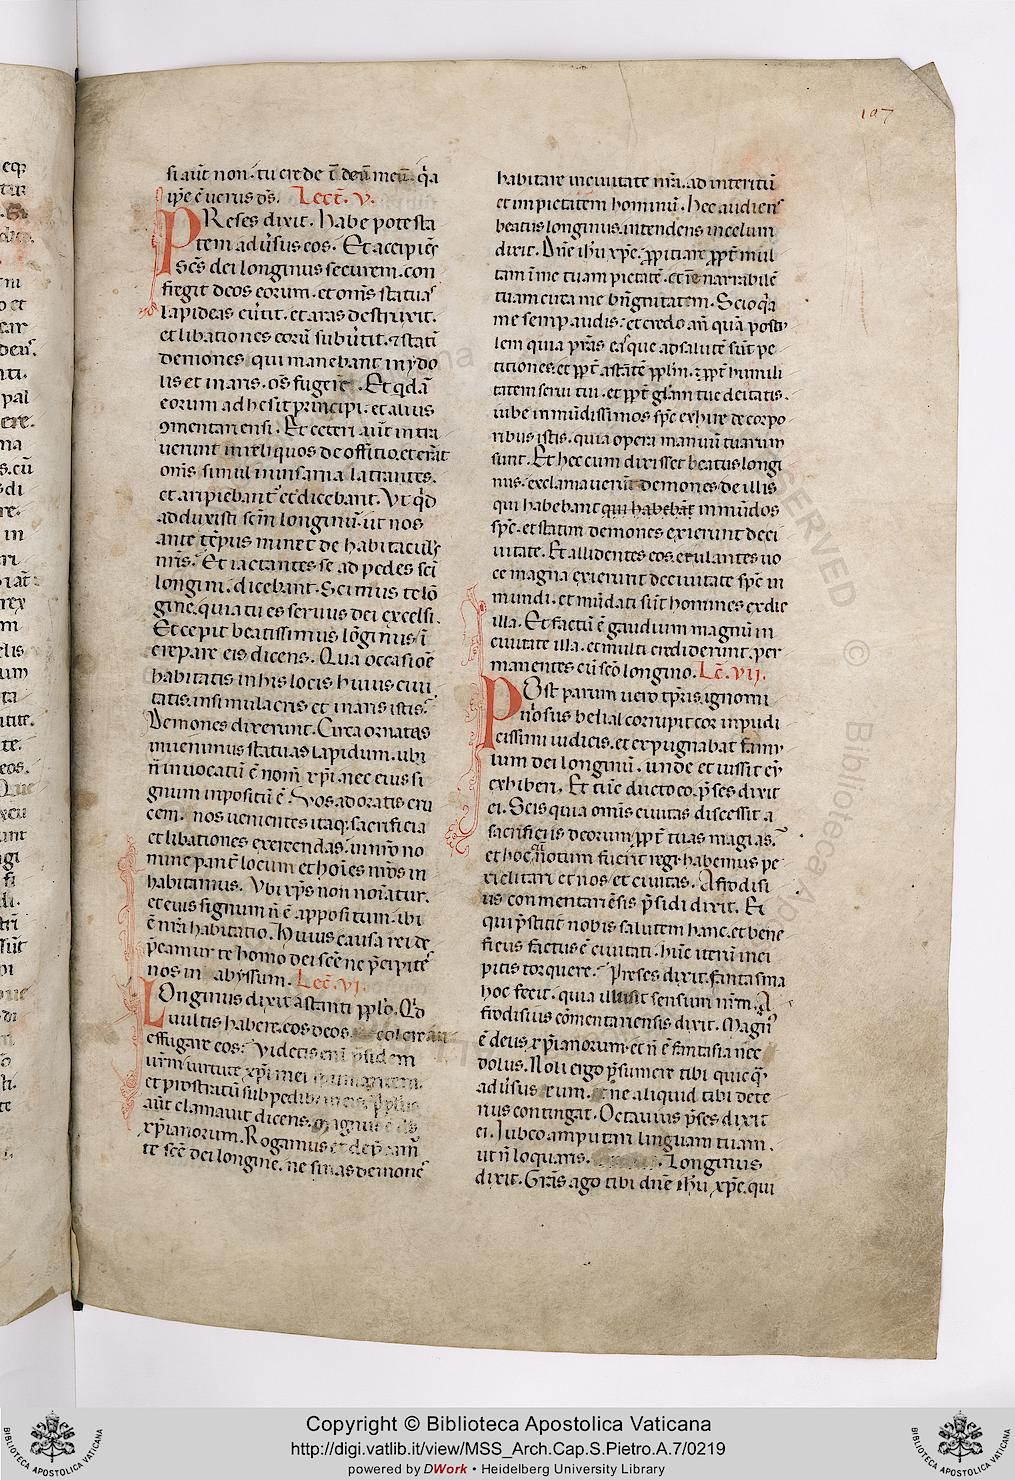 197
si aut̄ non · tu crede ī deū meū · q̄a
ip̄e ē uerus ds̄. Lect̄. V.
PReses dixit. habe potesta
tem adūsus eos. Et accipiēs
sc̄s dei longinus securem. con
fregit deos eorum. et om̄s statuas
lapideas eūtit. et aras destruxit.
et libationes eorū subūtit. ⁊ stati
demones qui manebant in ydo
lis et in aris. om̄s fugere. Et q̄dā
eorum adhesit principi. et alius
ꝯmentariensi. Et ceteri aūt intra
uerunt in reliquos de officio. et erāt
om̄s simul in insania latrantes.
et aripiebant et dicebant. Vt q̄d
adduxisti sc̄m longinū. ut nos
ante tēpus minet de habitaculis
nr̄is. Et iactantes se ad pedes sc̄i
longini. dicebant. Scimus te lō
gine. quia tu es seruus dei excelsi.
Et cepit beatissimus lōginus ī
crepare eis dicens. Qua occasiōe
habitatis in his locis huius ciui
tatis. in simulacris et in aris istis.
Demones dixerunt. Circa ornatas
inuenimus statuas lapidum. ubi
n̄ inuocatū ē nom̄ xp̄i. nec eius si
gnum inpositū ē. Vos adoratis cru
cem. nos uenientes itaq; sacrificia
et libationes exercendas. in nr̄o no
mine
habitamus. Vbi xp̄s non noīatur.
et eius signum n̄ ē appositum. ibi
ē nr̄a habitatio. Huius causa rei de
p̄camur te homo dei sc̄e ne p̄cipites
nos in abyssum. Lec̄. VI.
LOnginus dixit astanti pp̄lo. Q̄d
uultis habere. eos deos. colere
effugare eos. Videtis eni p̄sidem
ur̄m uirtute xp̄i mei
et prostratū sub pedibus
aūt clamauit dicens. magnus ē ds̄
xp̄ianorum. Rogamus et dep̄camur
te sc̄e dei longine. ne sinas demones
habitare in ciuitate nr̄a. ad interitū
et impietatem hominū. hec audiens
beatus longinus. intendens in celum
dixit. Dn̄e ih̄u xp̄e. ꝓpitiare ꝓpt̄ mul
tam ī me tuam pietatē. et īenarrabilē
tuam cirta me bn̄gnitatem. Scio q̄a
me semp̄ audis. et credo
lem quia
titiones. et ꝓpt̄ astātē pp̄lm. ⁊ ꝓpt̄ humili
tatem serui tui. et ꝓpt̄ gl̄am tue deitatis.
iube inmūdissimos sp̄c exhire de corpo
ribus istis. quia opera manuū tuarum
sunt. Et hec cum dixisset beatus longi
nus. exclamauerūt demones de illis
qui habebant qui habebāt inmūdos
sp̄c. et statim demones exierunt de ci
uitate. Et allidentes eos. et ulantes uo
ce magna exierunt de ciuitate sp̄c in
mundi. et mūdati sūt homines ex die
illa. Et factū ē gaudium magnū in
ciuitate illa. et multi crediderunt. per
manentes cū sc̄o longino. Lec̄. VII.
POst parum uero tp̄ris. ignomi
niosus belial corrupit cor inpudi
cissimi iudicis. et expugnabat famu
lum dei longinū. unde et iussit eū
exhiberi. Et tūc ducto eo. p̄ses dixit
ei. Scis quia om̄is ciuitas discessit a
sacrificiis deorum ꝓpt̄ tuas magias.
et hoc notum fuerit regi. habemus pe
riclitari et nos et ciuitas. Afrodisi
us commentarēsis p̄sidi dixit. Ei
qui p̄stitit nobis salutem hanc. et bene
ficus factus ē ciuitati. hūc iterū inci
pitis torquere. Preses dixit. fantasma
hoc fecit. quia illusit sensum nr̄m. A
frodisius cōmentariensis dixit. Magn
ē deus xp̄ianorum. et n̄ ē fantasia nec
dolus. Noli ergo p̄sumere tibi quicq̄
adūsus eum. ne aliquid tibi dete
rius contingat. Octauius p̄ses dixit
ei. Iubeo amputari linguam tuam.
ut n̄ loquaris. Longinus
dixit. Gr̄as ago tibi dn̄e ih̄u xp̄e. qui
Copyright © Biblioteca Apostolica Vaticana
http://digi.vatlib.it/view/MSS_Arch.Cap.S.Pietro.A.7/0219
powered by DWork • Heidelberg University Library
BIBLIOTECA APOSTOLICA VATICANA
BIBLIOTECA APOSTOLICA VATICANA